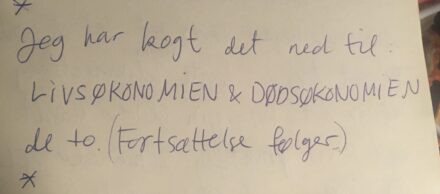 *
Jeg har kogt det ned til:
LIVSØKONOMIEN & DØDSØKONOMIEN
de to. (Fortsættelse følger.)
*